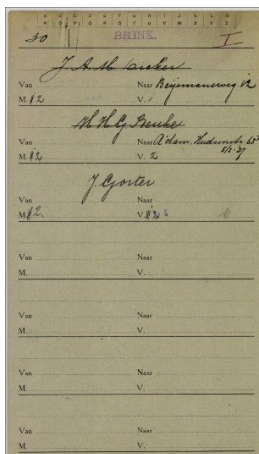 30 BRINK. I
J A M
Van Naar Beijimansweg 12
M. 12 V. 1
H H G Beuke
Van Naar A'dam. Hudsonstr 65
M. 12 V. 2 8/2-37
J Gorter
Van Naar
M. 12. V.
Van Naar
M. V.
Van Naar
M. V.
Van Naar
M. V.
Van Naar
M. V.